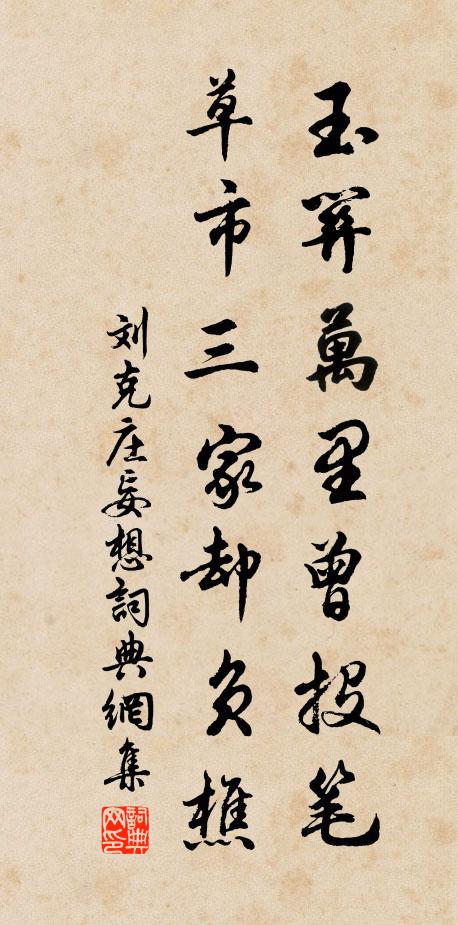 玉關萬里曾投笔
草市三家却负樵
刘克庄妄想詞典網集
詞典网印